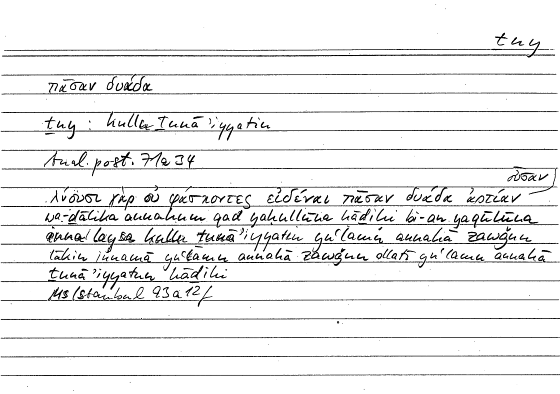 ṯny
πᾶσαν δυάδα
ṯny : kullu ṯunāʾiyyatin
Anal. post. 71a34
οὖσαν
λύουσι γὰρ οὐ φάσκοντες εἰδέναι πᾶσαν δυάδα ἀρτίαν
wa-ḏālika annahum qad yaḥullūna hāḏihi bi-an yaqūlūna
inna laysa kullu ṯunāʾiyyatin yuʿlamu annahā zawǧun
lākin innamā yuʿlamu annahā zawǧun allatī yuʿlamu annahā
ṯunāʾiyyatun hāḏihi
Ms Istanbul 93a12f